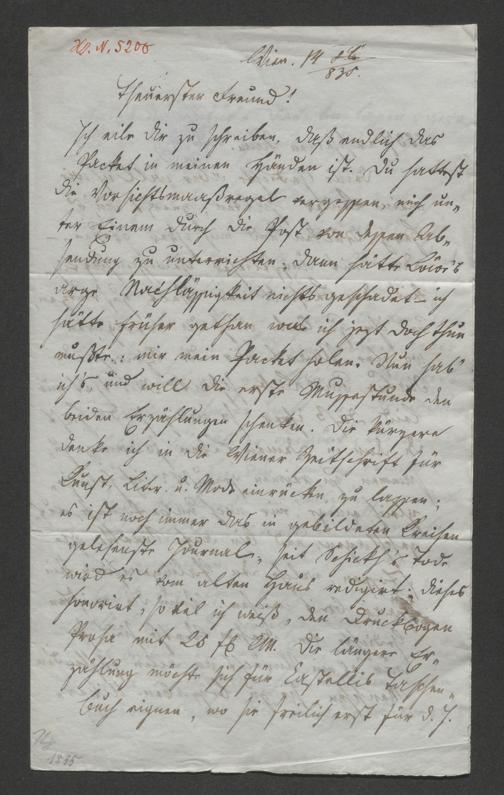 H. N. 5206
Wien. 14 /835.
Theuerster Freund!
Ich eile dir zu schreiben, daß endlich das
Packet in meinen Händen ist. Du hattest
die Vorsichtsmaaßregel vergessen, mich un-
ter Einem durch die Post von dessen Ab-
sendung zu unterrichten, dann hätte
arge Nachlässigkeit nichts geschadet – ich
hätte früher gethan was ich jezt doch thun
mußte: mir mein Packet holen. Nun hab'
ich's und will die erste Mussestunde den
beiden Erzählungen schenken. Die kürzere
denke ich in die Wiener Zeitschrift für
Kunst, Liter. u. Mode einrücken zu lassen;
es ist noch immer das in gebildeten Kreisen
gelesenste Journal, seit Schickh's Tode
wird es vom alten Haus redigirt; dieses
honorirt, so viel ich weiß, den Druckbogen
Prosa mit 20 f CM. Die längere Er-
zählung möchte sich für Castellis Taschen-
buch eignen, wo sie freilich erst für d. J.
1835